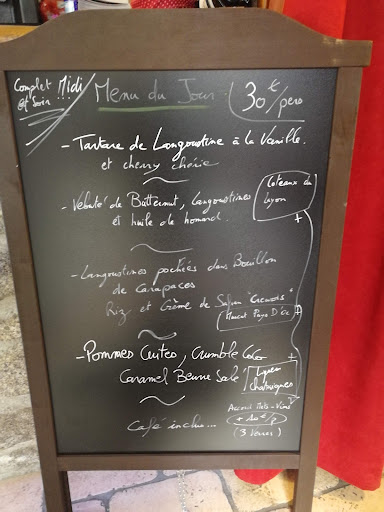 Complet Midi
et soir
Menu du Jour
30€/pers
- Tartare de Langoustine à la Vanille.
et cherry chérie
- Velouté de Butternut, Langoustines
et huile de homard.
Coteaux du
Lyon
+
- Langoustines pochées dans Bouillon
de Carapaces
Riz et Crème de Safran "Creuzois"
Muscat Pays D'Oc
+
- Pommes Cuites, Crumble Coco
Caramel Beurre Salé
Liqueur
Chataignes
Café inclus...
Accord Mets-Vins
+ 10€/p
(3 verres)